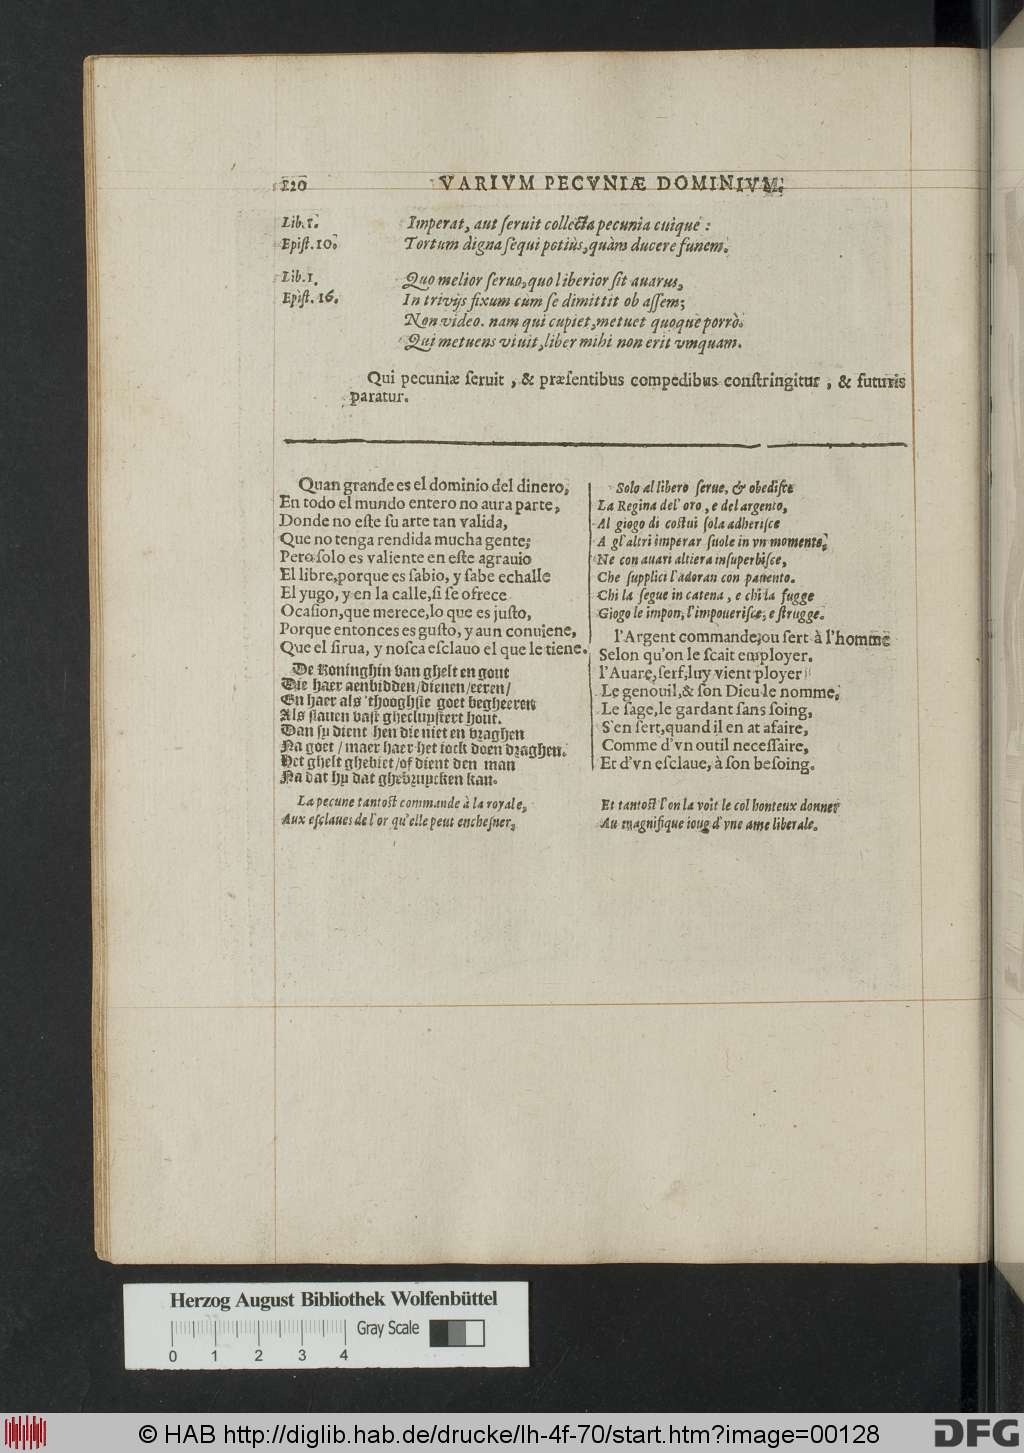 120
VARIVM PECVNIÆ DOMINIVM.
Lib. 1.
Epiſt. 10.
Imperat, aut ſeruit collecta pecunia cuique :
Tortum digna ſequi potiùs, quàm ducere funem.
Lib. 1.
Epiſt. 16.
Quo melior ſeruo, quo liberior ſit auarus,
In triviјs fixum cum ſe dimittit ob aſſem;
Non video. nam qui cupiet, metuet quoque porrò.
Qui metuens viuit, liber mihi non erit vnquam.
Qui pecuniæ ſeruit , & præſentibus compedibus conſtringitur , & futuris
paratur.
Quan grande es el dominio del dinero,
En todo el mundo entero no aura parte,
Donde no eſte ſu arte tan valida,
Que no tenga rendida mucha gente;
Pero ſolo es valiente en eſte agrauio
El libre, porque es ſabio, y ſabe echalle
El yugo, y en la calle, ſi ſe ofrece
Ocaſion, que merece, lo que es juſto,
Porque entonces es guſto, y aun conuiene,
Que el ſirua, y no ſca eſclauo el que le tiene.
De Koninghin van ghelt en gout
Die haer aenbidden/dienen/eeren/
En haer als 'thooghſte goet begheeren
Als ſlauen vaſt ghecluyſtert hout.
Dan ſy dient hen die niet en vraghen
Na goet / maer haer het jock doen draghen.
Het ghelt ghebiet/of dient den man
Na dat hy dat ghebruycken kan.
La pecune tantoſt commande à la royale,
Aux eſclaues de l'or qu'elle peut encheſner,
Solo al libero ſerue, & obediſce
La Regina del' oro, e del argento,
Al giogo di coſtui ſola adheriſce
A gl'altri imperar ſuole in vn momento,
Ne con auari altiera inſuperbiſce,
Che ſupplici l'adoran con pauento.
Chi la ſegue in catena , e chi la fugge
Giogo le impon, l'impoueriſce, e ſtrugge.
l'Argent commande, ou ſert à l'homme
Selon qu'on le ſcait employer.
l'Auare, ſerf, luy vient ployer
Le genouil, & ſon Dieu le nomme,
Le ſage, le gardant ſans ſoing,
S'en ſert, quand il en at afaire,
Comme d'vn outil neceſſaire,
Et d'vn eſclaue, à ſon beſoing.
Et tantoſt l'on la voit le col honteux donner
Au magnifique ioug d'vne ame liberale.
Herzog August Bibliothek Wolfenbüttel
Gray Scale
0 1 2 3 4
© HAB http://diglib.hab.de/drucke/lh-4f-70/start.htm?image=00128
DFG